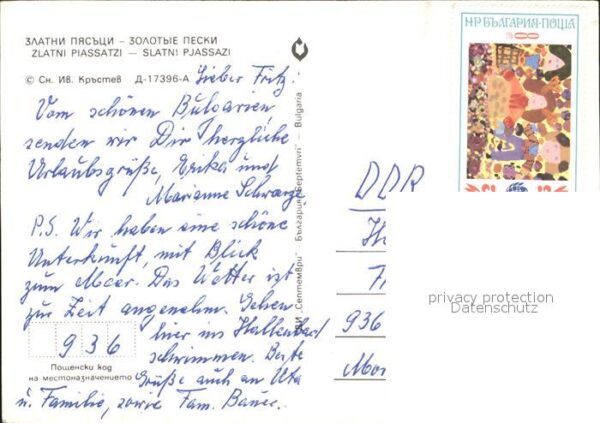 ЗЛАТНИ ПЯСЪЦИ – ЗОЛОТЫЕ ПЕСКИ
ZLATNI PIASSATZI — SLATNI PJASSAZI
© Сн. Ив. Кръстев Д-17396-А
Lieber Fritz!
Vom schönen Bulgarien
senden wir Dir herzliche
Urlaubsgrüße, Erika und
Marianne Schwarze
P.S. Wir haben eine schöne
Unterkunft, mit Blick
zum Meer. Das Wetter ist
zur Zeit angenehm. Gehen
hier ins Hallenbad
schwimmen. Beste
Grüße auch an Uta
u. Familie, sowie Fam.
936
Пощенски код
на местоназначението
"Септември" – България "Septemvri" – Bulgaria
НР БЪЛГАРИЯ·ПОЩА
8
DDR
936
privacy protection
Datenschutz